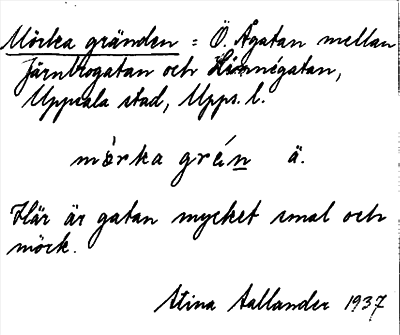 Mörka gränden = Ö. Ågatan mellan
Järnbrogatan och Linnégatan,
Uppsala stad, Upps. l.
mörka grén ä.
Här är gatan mycket smal och
mörk.
Stina Aallander 1937